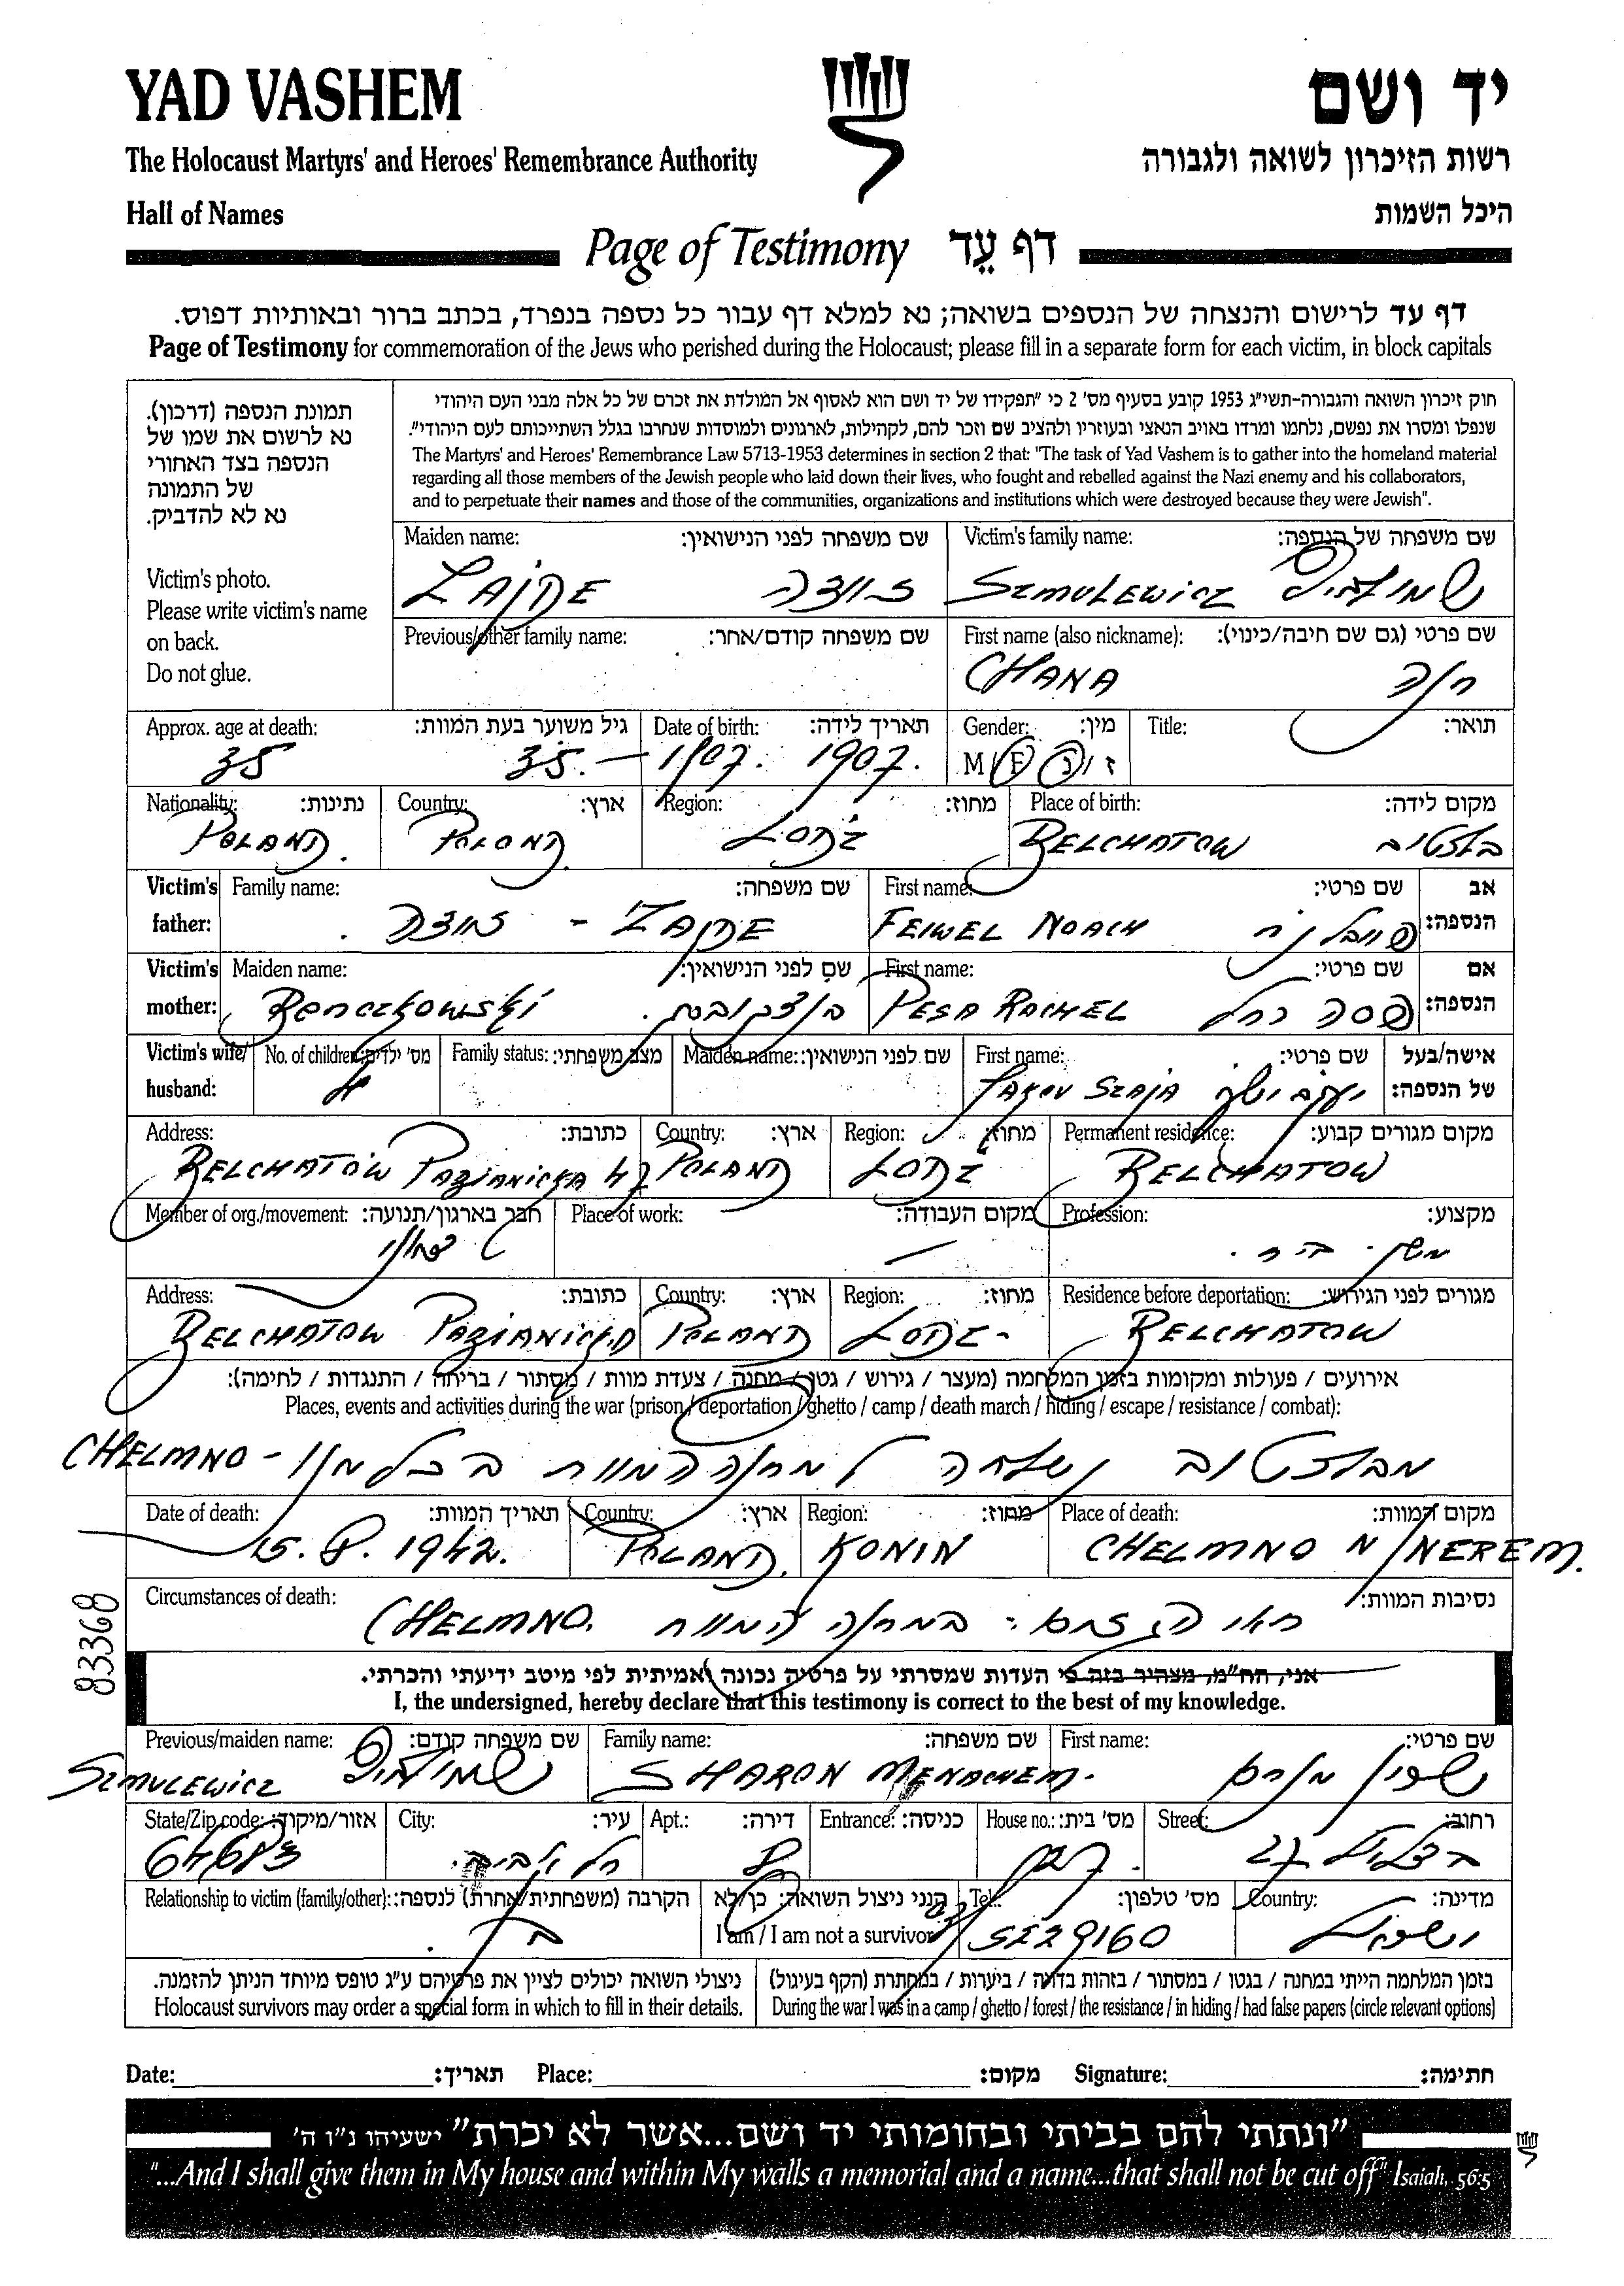 YAD VASHEM
יד ושם
The Holocaust Martyrs' and Heroes' Remembrance Authority
רשות הזיכרון לשואה ולגבורה
Hall of Names
היכל השמות
Page of Testimony דף עֵד
דף עד לרישום והנצחה של הנספים בשואה; נא למלא דף עבור כל נספה בנפרד, בכתב ברור ובאותיות דפוס.
Page of Testimony for commemoration of the Jews who perished during the Holocaust; please fill in a separate form for each victim, in block capitals
תמונת הנספה (דרכון).
נא לרשום את שמו של
הנספה בצד האחורי
של התמונה
נא לא להדביק.
Victim's photo.
Please write victim's name
on back.
Do not glue.
חוק זיכרון השואה והגבורה-תשי"ג 1953 קובע בסעיף מס' 2 כי "תפקידו של יד ושם הוא לאסוף אל המולדת את זכרם של כל אלה מבני העם היהודי
שנפלו ומסרו את נפשם, נלחמו ומרדו באויב הנאצי ובעוזריו ולהציב שם וזכר להם, לקהילות, לארגונים ולמוסדות שנחרבו בגלל השתייכותם לעם היהודי".
The Martyrs' and Heroes' Remembrance Law 5713-1953 determines in section 2 that: "The task of Yad Vashem is to gather into the homeland material
regarding all those members of the Jewish people who laid down their lives, who fought and rebelled against the Nazi enemy and his collaborators,
and to perpetuate their names and those of the communities, organizations and institutions which were destroyed because they were Jewish".
Maiden name: שם משפחה לפני הנישואין: Victim's family name: שם משפחה של הנספה:
ZAJDE SZMULEWICZ שמולביץ
Previous/other family name: שם משפחה קודם/אחר: First name (also nickname): שם פרטי (גם שם חיבה/כינוי):
CHANA חנה
Approx. age at death: גיל משוער בעת המוות: Date of birth: תאריך לידה: Gender: מין: Title: תואר:
35 35. 1907. 1907. M F ז / נ
Nationality: נתינות: Country: ארץ: Region: מחוז: Place of birth: מקום לידה:
POLAND. POLOND LODZ BELCHATOW בלצטוב
Victim's father: Family name: שם משפחה: First name: שם פרטי: אב הנספה:
ZAJDE FEIWEL NOACH
Victim's mother: Maiden name: שם לפני הנישואין: First name: שם פרטי: אם הנספה:
PESA RACHEL פסה רחל
Victim's wife/husband: No. of children: מס' ילדים: Family status: מצב משפחתי: Maiden name: שם לפני הנישואין: First name: שם פרטי: אישה/בעל של הנספה:
4 JAKOV SZAJA יעקב ישעיה
Address: כתובת: Country: ארץ: Region: מחוז: Permanent residence: מקום מגורים קבוע:
BELCHATÓW PABJANICKA 47 POLAND LODZ BELCHATOW
Member of org./movement: חבר בארגון/תנועה: Place of work: מקום העבודה: Profession: מקצוע:
Address: כתובת: Country: ארץ: Region: מחוז: Residence before deportation: מגורים לפני הגירוש:
BELCHATOW POLAND LODZ- BELCHATOW
אירועים / פעולות ומקומות בזמן המלחמה (מעצר / גירוש / גטו / מחנה / צעדת מוות / מסתור / בריחה / התנגדות / לחימה):
Places, events and activities during the war (prison / deportation / ghetto / camp / death march / hiding / escape / resistance / combat):
מבלצטוב נשלחה למחנה המוות בכלמנו - CHELMNO
Date of death: תאריך המוות: Country: ארץ: Region: מחוז: Place of death: מקום המוות:
15.8.1942. POLAND. KONIN CHELMNO N/NEREM.
Circumstances of death: נסיבות המוות:
במחנה המוות CHELMNO.
83368
אני, הח"מ, מצהיר בזה כי העדות שמסרתי על פרטיה נכונה ואמיתית לפי מיטב ידיעתי והכרתי.
I, the undersigned, hereby declare that this testimony is correct to the best of my knowledge.
Previous/maiden name: שם משפחה קודם: Family name: שם משפחה: First name: שם פרטי:
SZMULEWICZ שמולביץ SHARON MENACHEM. שרון מנחם
State/Zip code: אזור/מיקוד: City: עיר: Apt.: דירה: Entrance: כניסה: House no.: מס' בית: Street: רחוב:
64683 תל אביב. 8 27
Relationship to victim (family/other): הקרבה (משפחתית/אחרת) לנספה: הנני ניצול השואה: כן/לא Tel.: מס' טלפון: Country: מדינה:
I am / I am not a survivor
בן. 03 5229160 ישראל
ניצולי השואה יכולים לציין את פרטיהם ע"ג טופס מיוחד הניתן להזמנה. בזמן המלחמה הייתי במחנה / בגטו / במסתור / בזהות בדויה / ביערות / במחתרת (הקף בעיגול)
Holocaust survivors may order a special form in which to fill in their details. During the war I was in a camp / ghetto / forest / the resistance / in hiding / had false papers (circle relevant options)
Date: תאריך: Place: מקום: Signature: חתימה:
"ונתתי להם בביתי ובחומותי יד ושם...אשר לא יכרת" ישעיהו נ"ו ה'
"...And I shall give them in My house and within My walls a memorial and a name...that shall not be cut off" Isaiah, 56:5